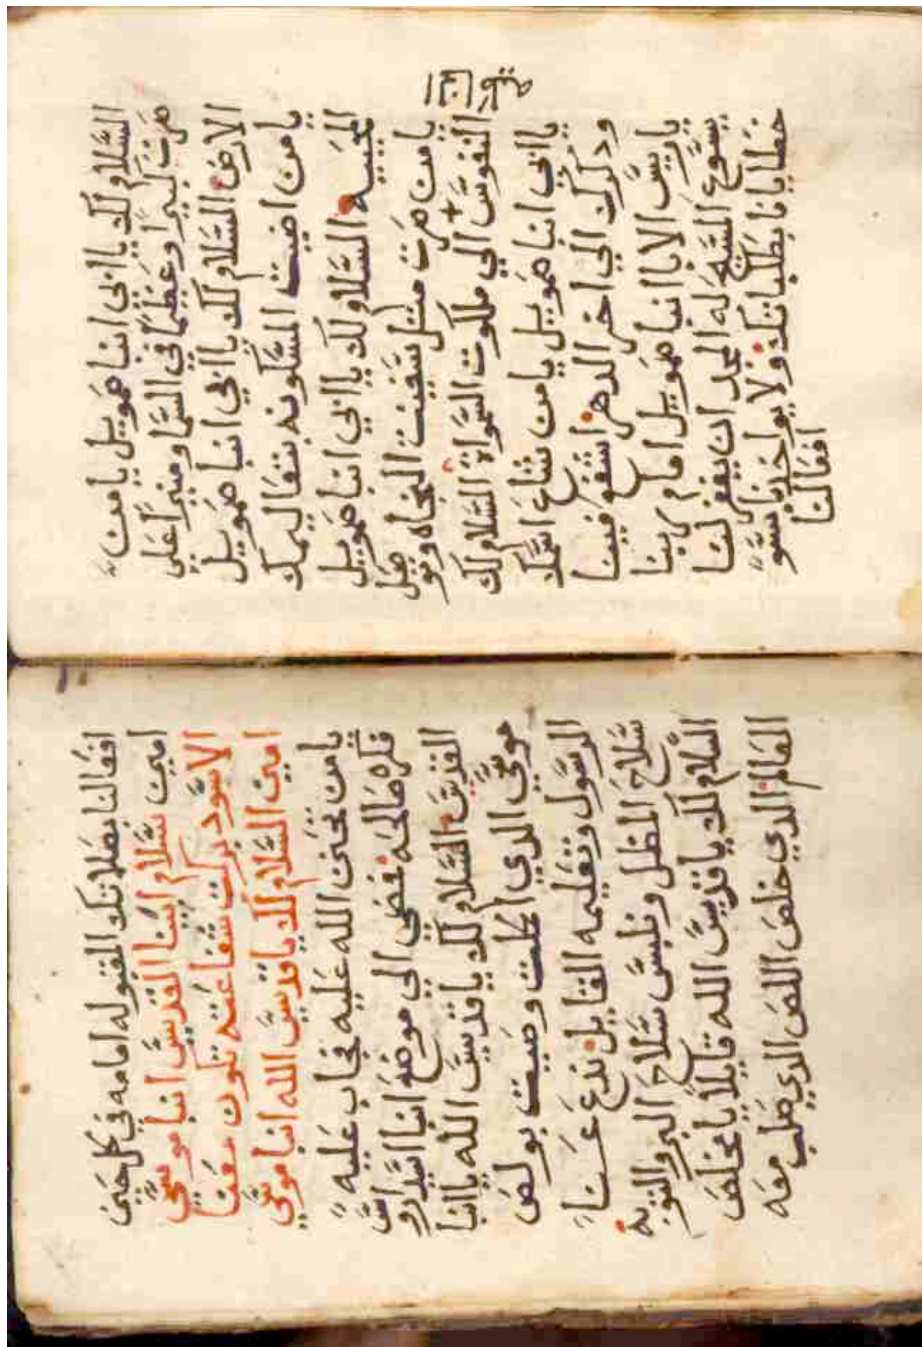 السلام لك يا ابي انبا صمويل يا من
صرت كبيرا وعظيما في السما ومنيرا علي
الارض السلام لك يا ابي انبا صمويل
يا من اضيت المسكونه بتعاليمك
المحييه السلام لك يا ابي انبا صمويل
يا من صرت متل سفينت النجاه وتوصل
النفوس الي ملكوت السموات السلام لك
يا ابي انبا صمويل يا من شاع اسمك
ودكرك الي اخر الدهر اشفع فينا
يا ريس الابا انبا صمويل امام ربنا
يسوع المسيح له المجد ان يغفر لنا
خطايانا بطلباتك ولا يواخدنا بسو
افعالنا
افعالنا بصلاتك المقبوله امامه في كل حين
امين سلام ابينا القديس انبا موسي
الاسود بركت شفاعته تكون معنا
امين السلام لك يا قديس الله انبا موسي
يا من تحنن الله عليه فجاب عليه
فكره صالحه فمضي الي موضع انبا اسيداروس
القديس السلام لك يا قديس الله يا انبا
موسي الدي اكملت وصيت بولص
الرسول وتعليمه القايل ندع عنا
سلاح المظل ونلبس سلاح البر والتوبه
السلام لك يا قديس الله قايلا يا مخلص
العالم الدي خلص اللص الدي صلب معه